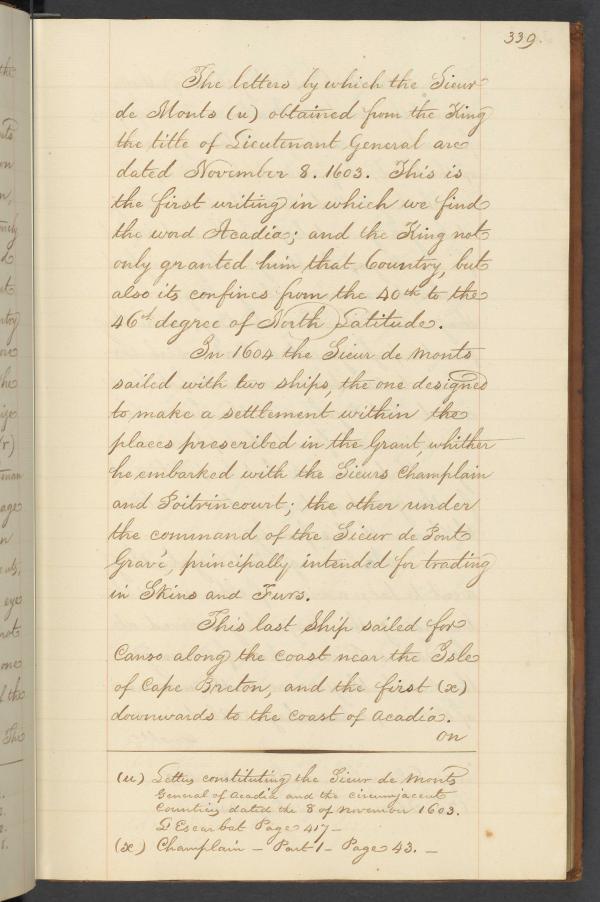 339.
The letters by which the Sieur
de Monts (u) obtained from the King
the title of Lieutenant General are
dated November 8. 1603. This is
the first writing in which we find
the word Acadia; and the King not
only granted him that Country, but
also its confines from the 40th to the
46th degree of North Latitude.
In 1604 the Sieur de Monts
sailed with two ships, the one designed
to make a settlement within the
places prescribed in the Grant, whither
he embarked with the Sieurs Champlain
and Poitrincourt; the other under
the command of the Sieur de Pont
Gravé, principally intended for trading
in Skins and Furs.
This last Ship sailed for
Canso along the coast near the Isle
of Cape Breton, and the first (x)
downwards to the coast of Acadia.
on
(u) Letters constituting the Sieur de Monts
General of Acadia and the circumjacent
Countries dated the 8 of November 1603.
L'Escarbat Page 417 –
(x) Champlain – Part 1 – Page 43. –